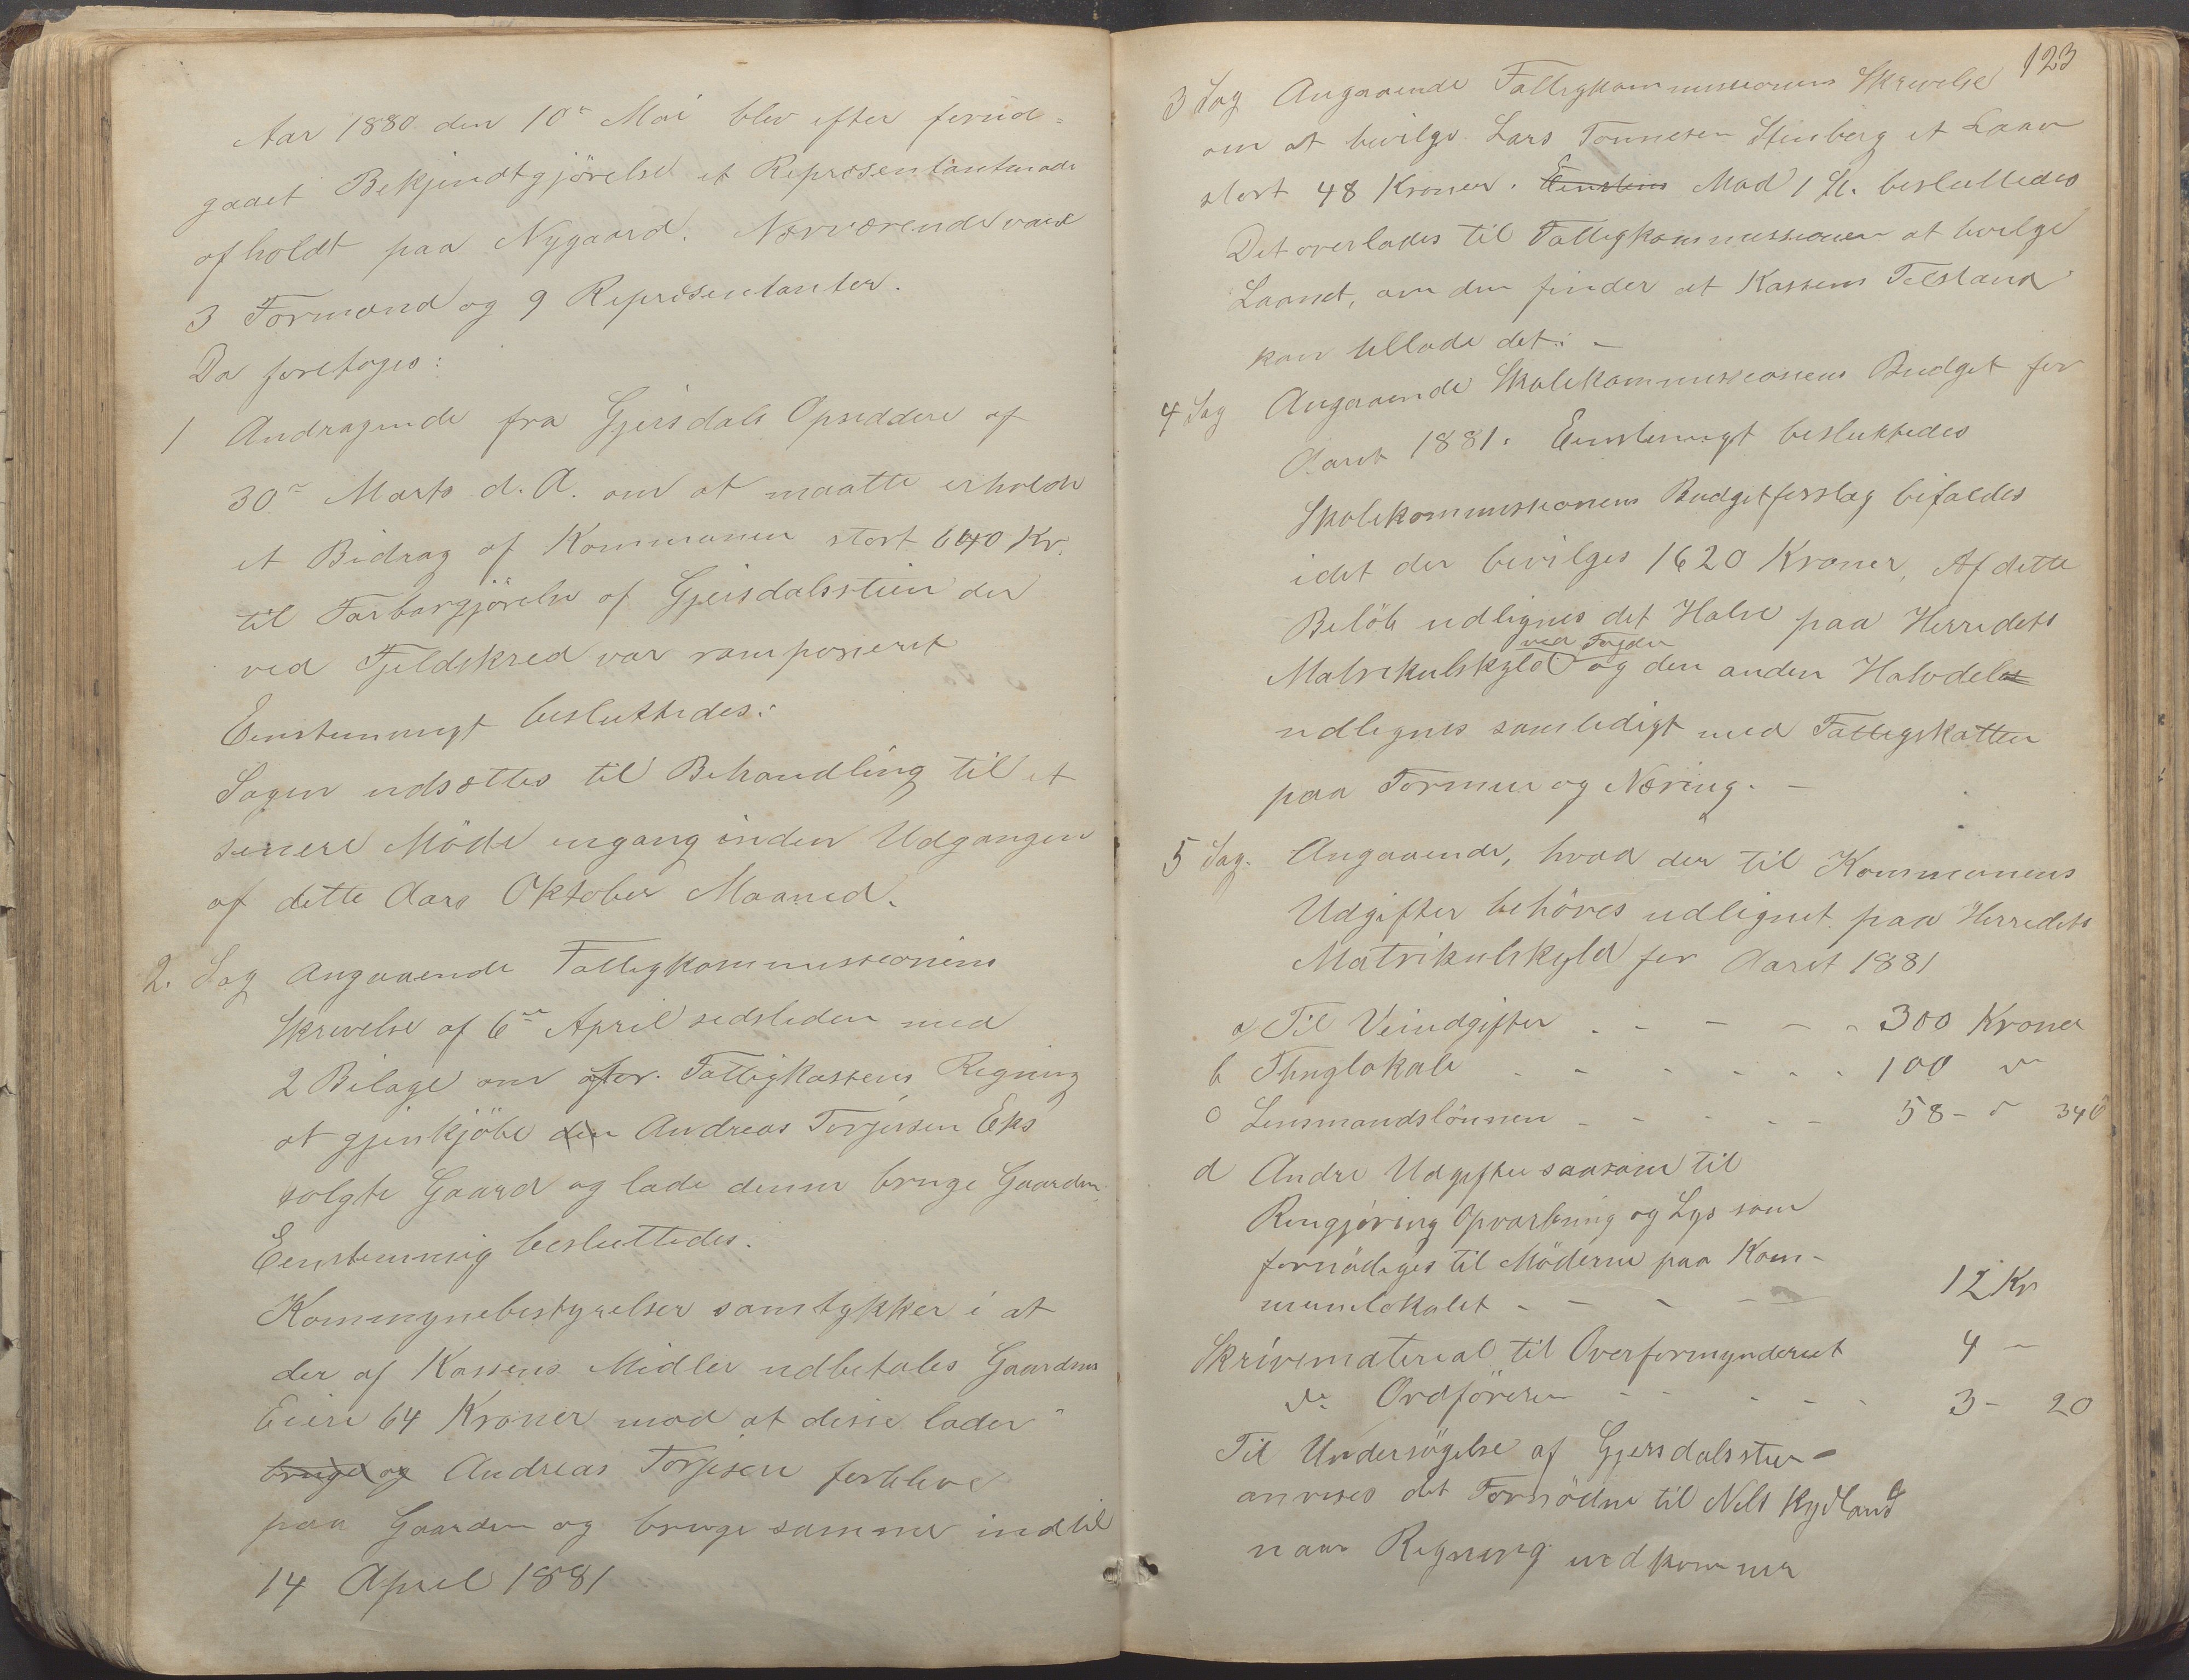 Aar 1880 den 10de Mai blev efter forud=
gaaet Bekjendtgjörelse et Repræsentantmøde
afholdt paa Nygaard. Nærværende vare
3 Formænd og 9 Repræsentanter.
Da foretoges:
1 Andragende fra Gjersdals Opsiddere af
30te Marts d. A. om at maatte erholde
et Bidrag af Kommunen stort 640 Kr.
til Farbargjörelse af Gjersdalsstien der
ved Fjeldskred var ramponeret
Eenstemmigt besluttedes:
Sagen udsættes til Behandling til et
senere Möde engang inden Udgangen
af dette Aars Oktober Maaned.
2. Sag angaaende Fattigkommissionens
Skrivelse af 6te April sidstleden med
2 Bilage om for Fattigkassens Regning
at gjenkjöbe den Andreas Torjersen Eks
solgte Gaard og lade denne bruge Gaarden.
Eenstemmig besluttedes.
Kommunebestyrelsen samtykker i at
der af Kassens Midler udbetales Gaardens
Eiere 64 Kroner mod at disse lader
bruge og Andreas Torjesen forblive
paa Gaarden og bruge samme indtil
14 April 1881
123
3 Sag Angaaende Fattigkommissionens Skrivelse
om at bevilge Lars Tonnesen Stenberg et Laan
stort 48 Kroner. Eenstem Mod 1 St. besluttedes
Det overlades til Fattigkommissionen at bevilge
Laanet, om den finder at Kassens Tilstand
kan tillade det. –
4 Sag Angaaende Skolekommissionens Budget for
Aaret 1881. Eenstemmigt besluttedes
Skolekommissionens Budgetforslag bifaldes
idet der bevilges 1620 Kroner, Af dette
Belöb udlignes det Halve paa Herredets
ved Fogden
Matrikulskyld og den anden Halvdel
udlignes samledigt med Fattigskatten
paa Formue og Næring. –
5 Sag. Angaaende, hvad der til Kommunens
Udgifter behöves udlignet paa Herredets
Matrikulskyld for Aaret 1881
a Til Veiudgifter . - - - - 300 Kroner
b Thinglokale - - - - - - 100 do
c Lensmandslönnen - - - - - 58 - do 34 ö
d Andre Udgifter saasom til
Rengjöring Opvartning og Lys som
fornödiges til Möderne paa Kom-
munelokalet - - - - 12 Kr
Skrivematerial til Overformynderiet 4 -
do Ordföreren - - - - - 3 - 20
Til Undersögelse af Gjersdalsstien -
anvises det Fornödne til Nils Rydland
naar Regning indkommer